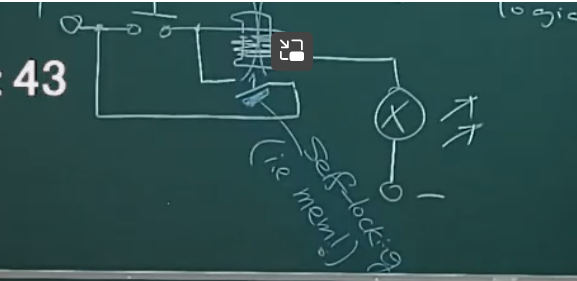 logic
: 43
X
Self-locking
(i.e mem!)